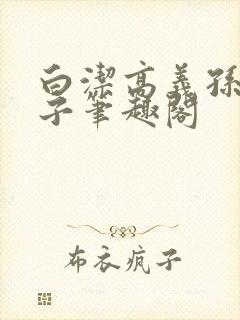 白潔高義孫
子筆趣閣
布衣疯子